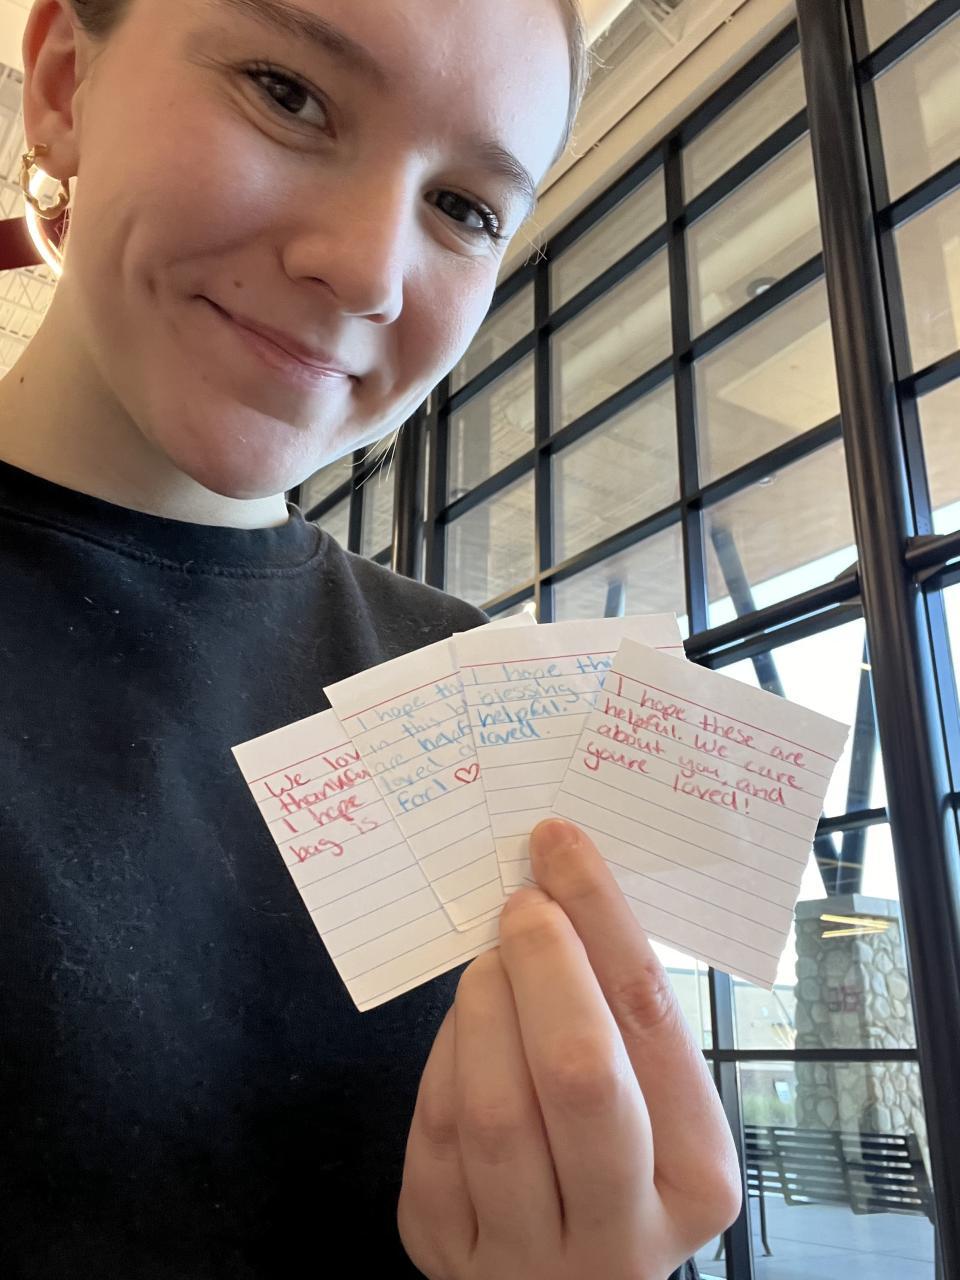 We lov
thankful
I hope
bag is
I hope thi
in this bl
are helpf
loved a
for! ♡
I hope thi
blessing
helpful.
loved.
I hope these are
helpful. We care
about you, and
youre loved!